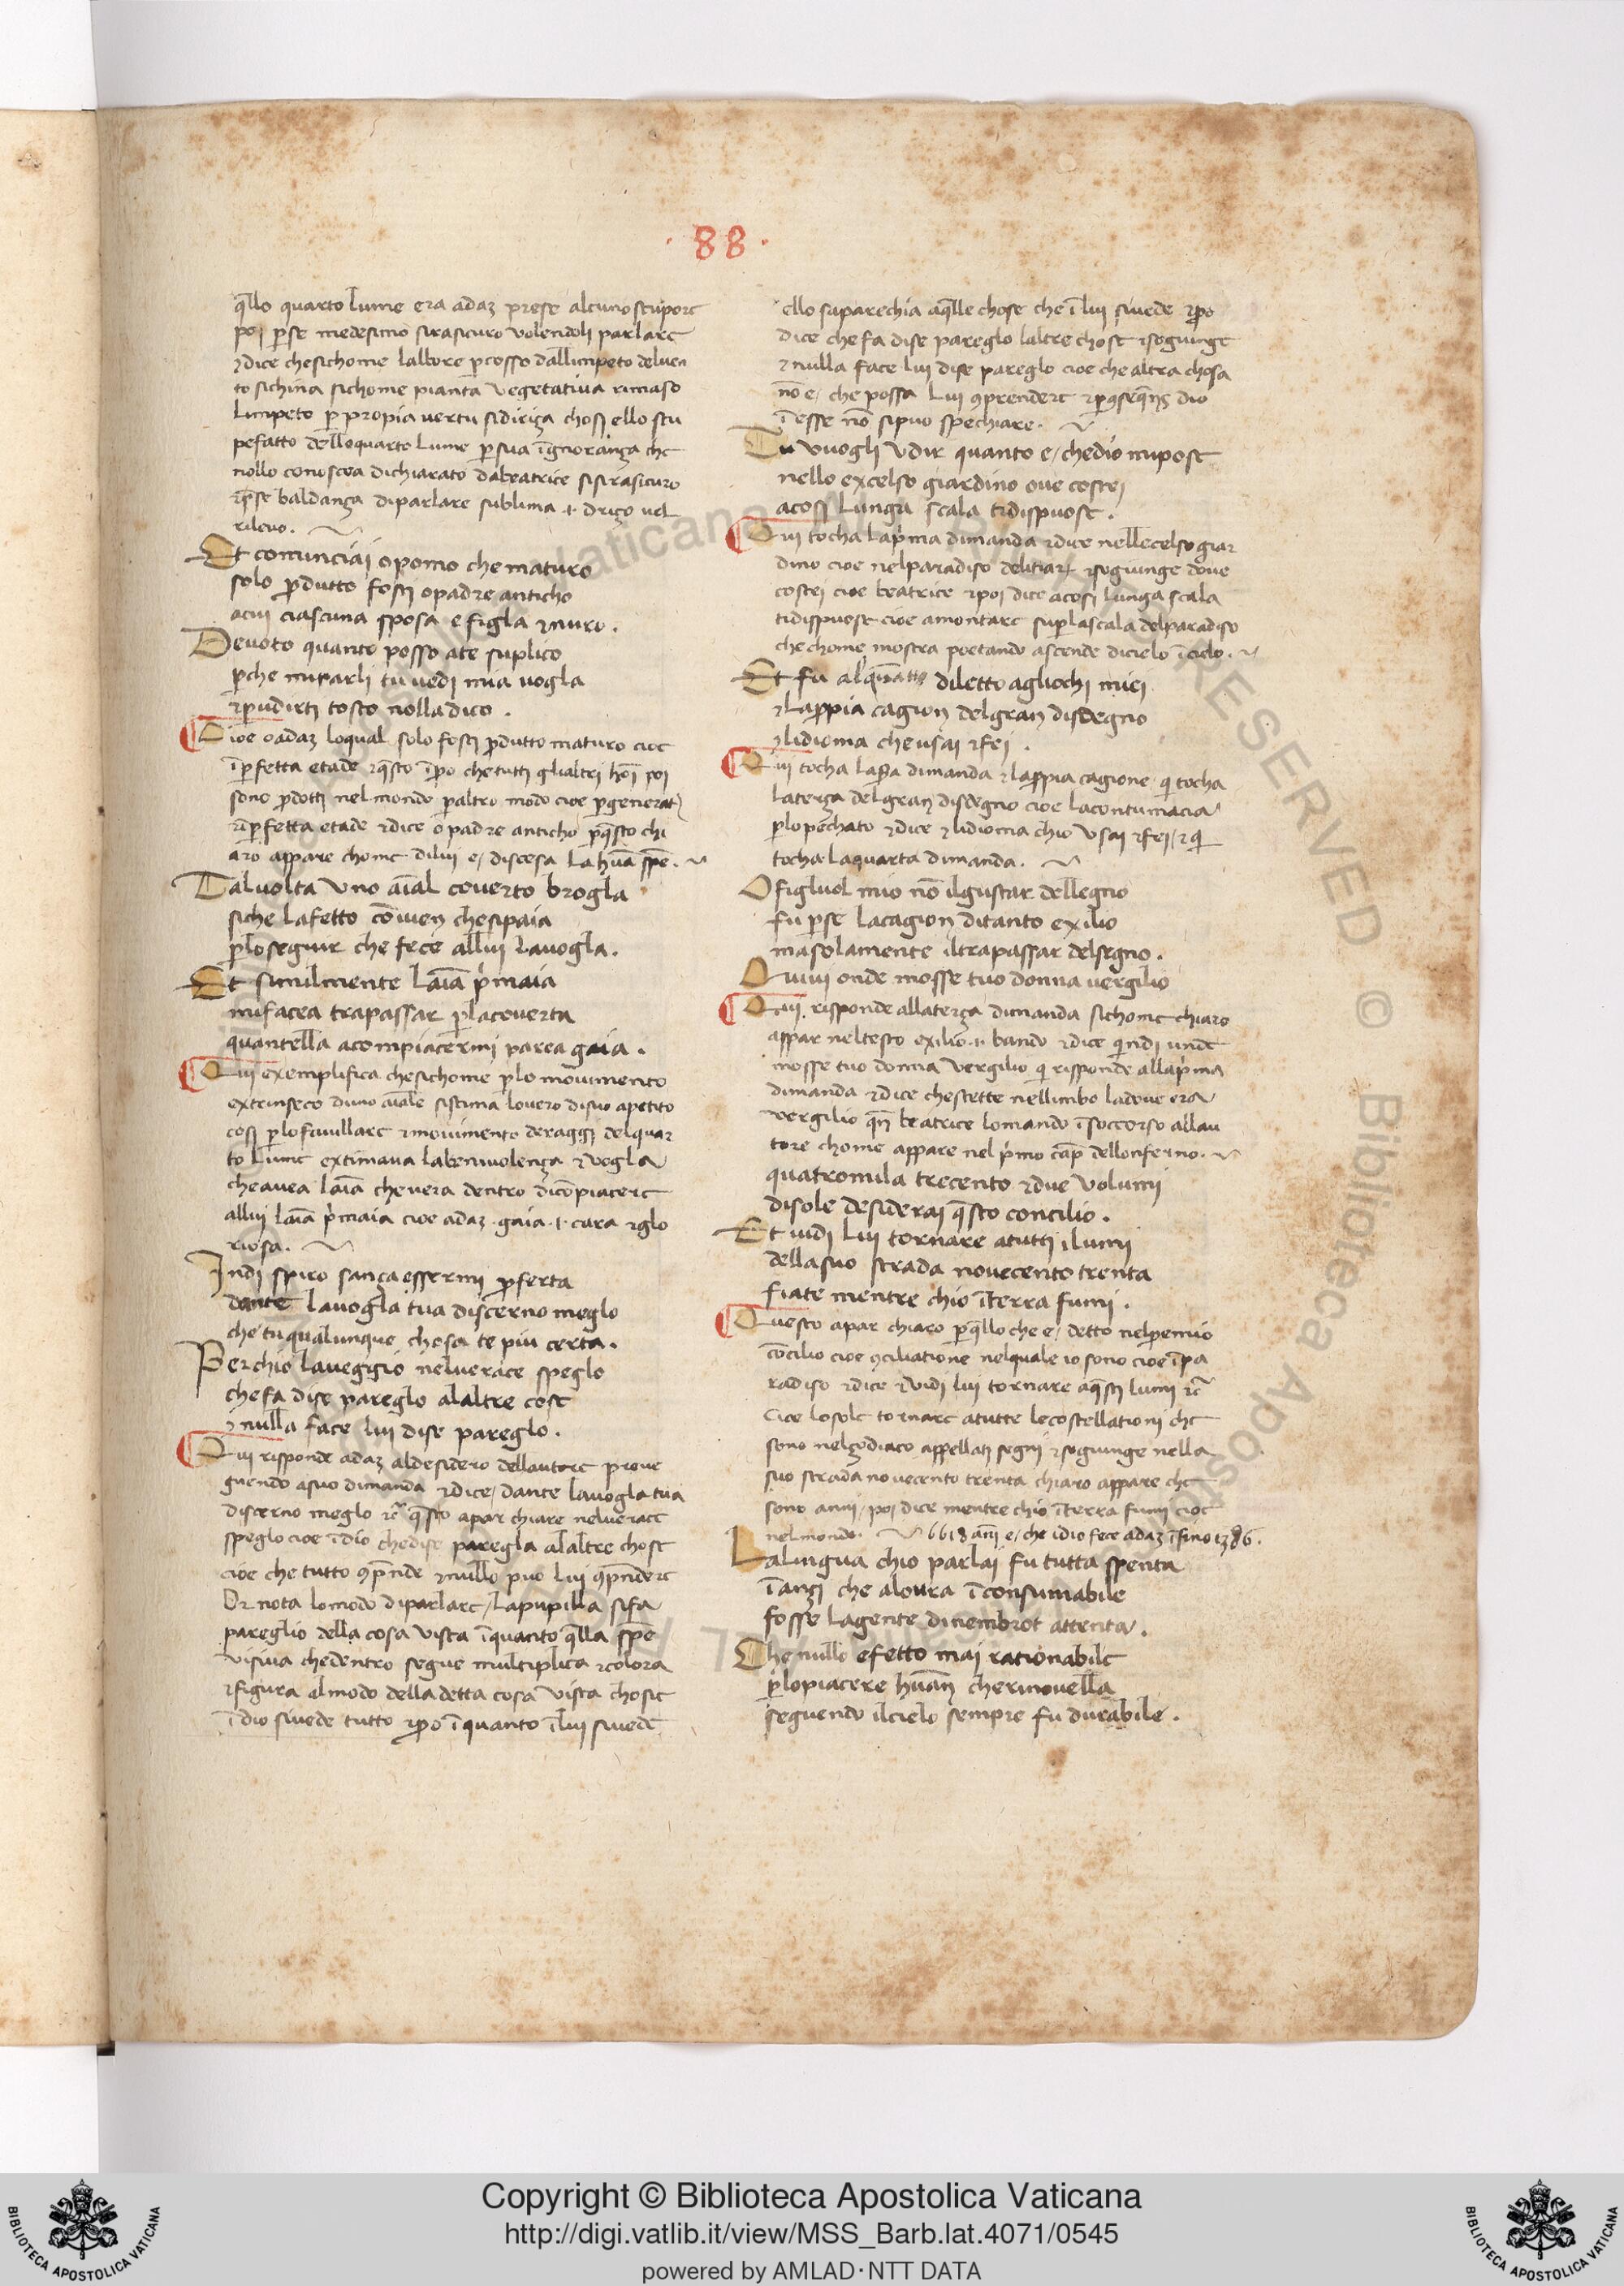 · 88 ·
q̄llo quarto lume era adaʒ prese alcuno stupore
poi ꝑse medesimo sirasicuro volendoli parlare
⁊dice chesichome lalbore ꝑcosso dallimpeto delven
to sichina sichome pianta vegetativa rimaso
limpeto ꝑ propia vertu sidiriça chosi ello stu
pefatto delloquarto lume ꝑsua īgnorança che
nollo conoscea dichiarato dabeatrice sisirasicuro
⁊p̄se baldança diparlare sublima .t. driço vel
rilevo.
Et cominciai opomo che maturo
solo ꝓdutto fosti opadre anticho
acui ciascuna sposa efigla ⁊nuro .
Devoto quanto posso ate suplico
ꝑche miparli tu vedi mia vogla
⁊ꝑudirti tosto nolladico .
Cioe oadaʒ loqual solo fosti ꝓdutto maturo cioe
īꝑfetta etade ⁊q̄sto īꝑo chetutti glialtri hoī poi
sono ꝓdotti nel mondo ꝑaltro modo cioe ꝑgenerat̄
īꝑfetta etade ⁊dice o padre anticho ꝑq̄sto chi
aro appare chome dilui e/ discesa la hūa spē .
Talvolta uno aīal coverto brogla
siche lafetto cōvien chesipaia
ꝑloseguir che fece allui lavogla .
Et similmente laīa p̄maia
mifacea trapassar ꝑlacoverta
quantella acompiacermi parea gaia .
Qui exemplifica chesichome ꝑlo movimento
extrinseco duno aīale sistima lovero disuo apetito
cosi ꝑlofavillare ⁊movimento deraggi delquar
to lume extimava labenivolença ⁊vogla
cheavea laīa chevera dentro dicōpiacere
allui laīa p̄maia cioe adaʒ .gaia .t. cara ⁊glo
riosa .
Indi spiro sança essermi ꝓferta
dante lavogla tua discerno meglo
che tu qualunque chosa te piu certa .
Perchio laveggio nelverace speglo
chefa dise pareglo alaltre cose
⁊nulla face lui dise pareglo .
Qui risponde adaʒ aldesidero dellautore prove
gnendo asuo dimanda ⁊dice/ dante lavogla tua
discerno meglo ⁊c̄ q̄sto apar chiare nelverace
speglo cioe īdio chedise paregla alaltre chose
cioe che tutto ꝯp̄nde ⁊nullo puo lui ꝯp̄ndere
Or nota lomodo diparlare/ lapupilla sifa
pareglio della cosa vista īquanto q̄lla spē
visiva chedentro segue multiplica ⁊colora
⁊figura almodo della detta cosa vista chosie
īdio sivede tutto ⁊ꝑo īquanto īlui sivede
ello suparechia aq̄lle chose che īlui sivede ⁊ꝑo
dice chefa dise pareglo laltre chose ⁊sogiunge
⁊nulla face lui dise pareglo cioe che altra chosa
nō e/ che possa lui ꝯprendere ⁊ꝑꝯseq̄nç dio
īesse nō sipuo spechiare .
Tu vuogli udir quanto e/ chedio mipose
nello excelso giardino ove costei
acosi lunga scala tidispuose .
Qui tocha lap̄ma dimanda ⁊dice nellecelso giar
dino cioe nelparadiso delitiar̄ ⁊sogiunge dove
costei cioe beatrice ⁊poi dice acosi lunga scala
tidispuose cioe amontare supꝑlascala delparadiso
che chome mostra poetando ascende dicielo īcielo .
Et fu alq̄natto diletto agliochi miei
⁊lapꝓpia cagion delgran disdegno
⁊lidioma che usai ⁊fei .
Qui tocha la dimanda ⁊lapꝓpia cagione q̄ tocha
laterça delgran disdegno cioe lacontumacia
ꝑlopechato ⁊dice ⁊lidioma chio usai ⁊fei/ ⁊q̄
tocha laquarta dimanda .
O figluol mio nō ilgustar dellegno
fu ꝑse lacagion ditanto exilio
masolamente iltrapassar delsegno .
Quivi onde mosse tuo donna vergilio
Qui risponde allaterça dimanda sichome chiaro
appar neltesto exilio .t. bando ⁊dice q̄ndi unde
mosse tuo donna vergilio q̄ risponde allap̄ma
dimanda ⁊dice chestette nellimbo ladove era
vergilio q̄n̄ beatrice lomando īsoccorso allau
tore chome appare nel p̄mo cap̄ dellonferno .
quatromila trecento ⁊due volumi
disole desiderai q̄sto concilio .
Et vidi lui tornare atutti ilumi
dellasuo strada novecento trenta
fiate mentre chio īterra fumi .
Questo apar chiaro ꝑq̄lloche e/ detto nelꝑemio
cōcilio cioe ꝯciliatione nelquale io sono cioe īpa
radiso ⁊dice ⁊vidi lui tornare aq̄sti lumi ⁊c̄
cioe losole tornare atutte lecostellationi che
sono nelçodiaco appellati segni ⁊sogiunge nella
suo strada novecento trenta chiaro appare che
sono anni/ poi dice mentre chio īterra fumi cioe
nelmondo . 6618 ān̄i e/ che idio fece adaʒ īfino 1386 .
La lingua chio parlai fu tutta spenta
īançi che aloura īconsumabile
fosse lagente dinembrot attenta .
Che nullo efetto mai rationabile
ꝑlopiacere hūan cherinovella
seguendo ilcielo sempre fu durabile .
Copyright © Biblioteca Apostolica Vaticana
http://digi.vatlib.it/view/MSS_Barb.lat.4071/0545
powered by AMLAD·NTT DATA
BIBLIOTECA APOSTOLICA VATICANA
BIBLIOTECA APOSTOLICA VATICANA